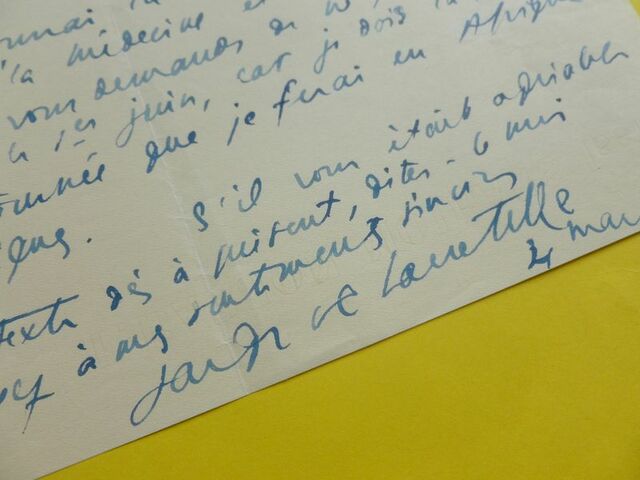 la médecine et
vous demande de
1er juin, car je dois
tournée que je ferai en Afrique
S'il vous était agréable
texte dès à présent, dites-le moi
à mes sentiments sincères
Jacques de Lacretelle
24 mars